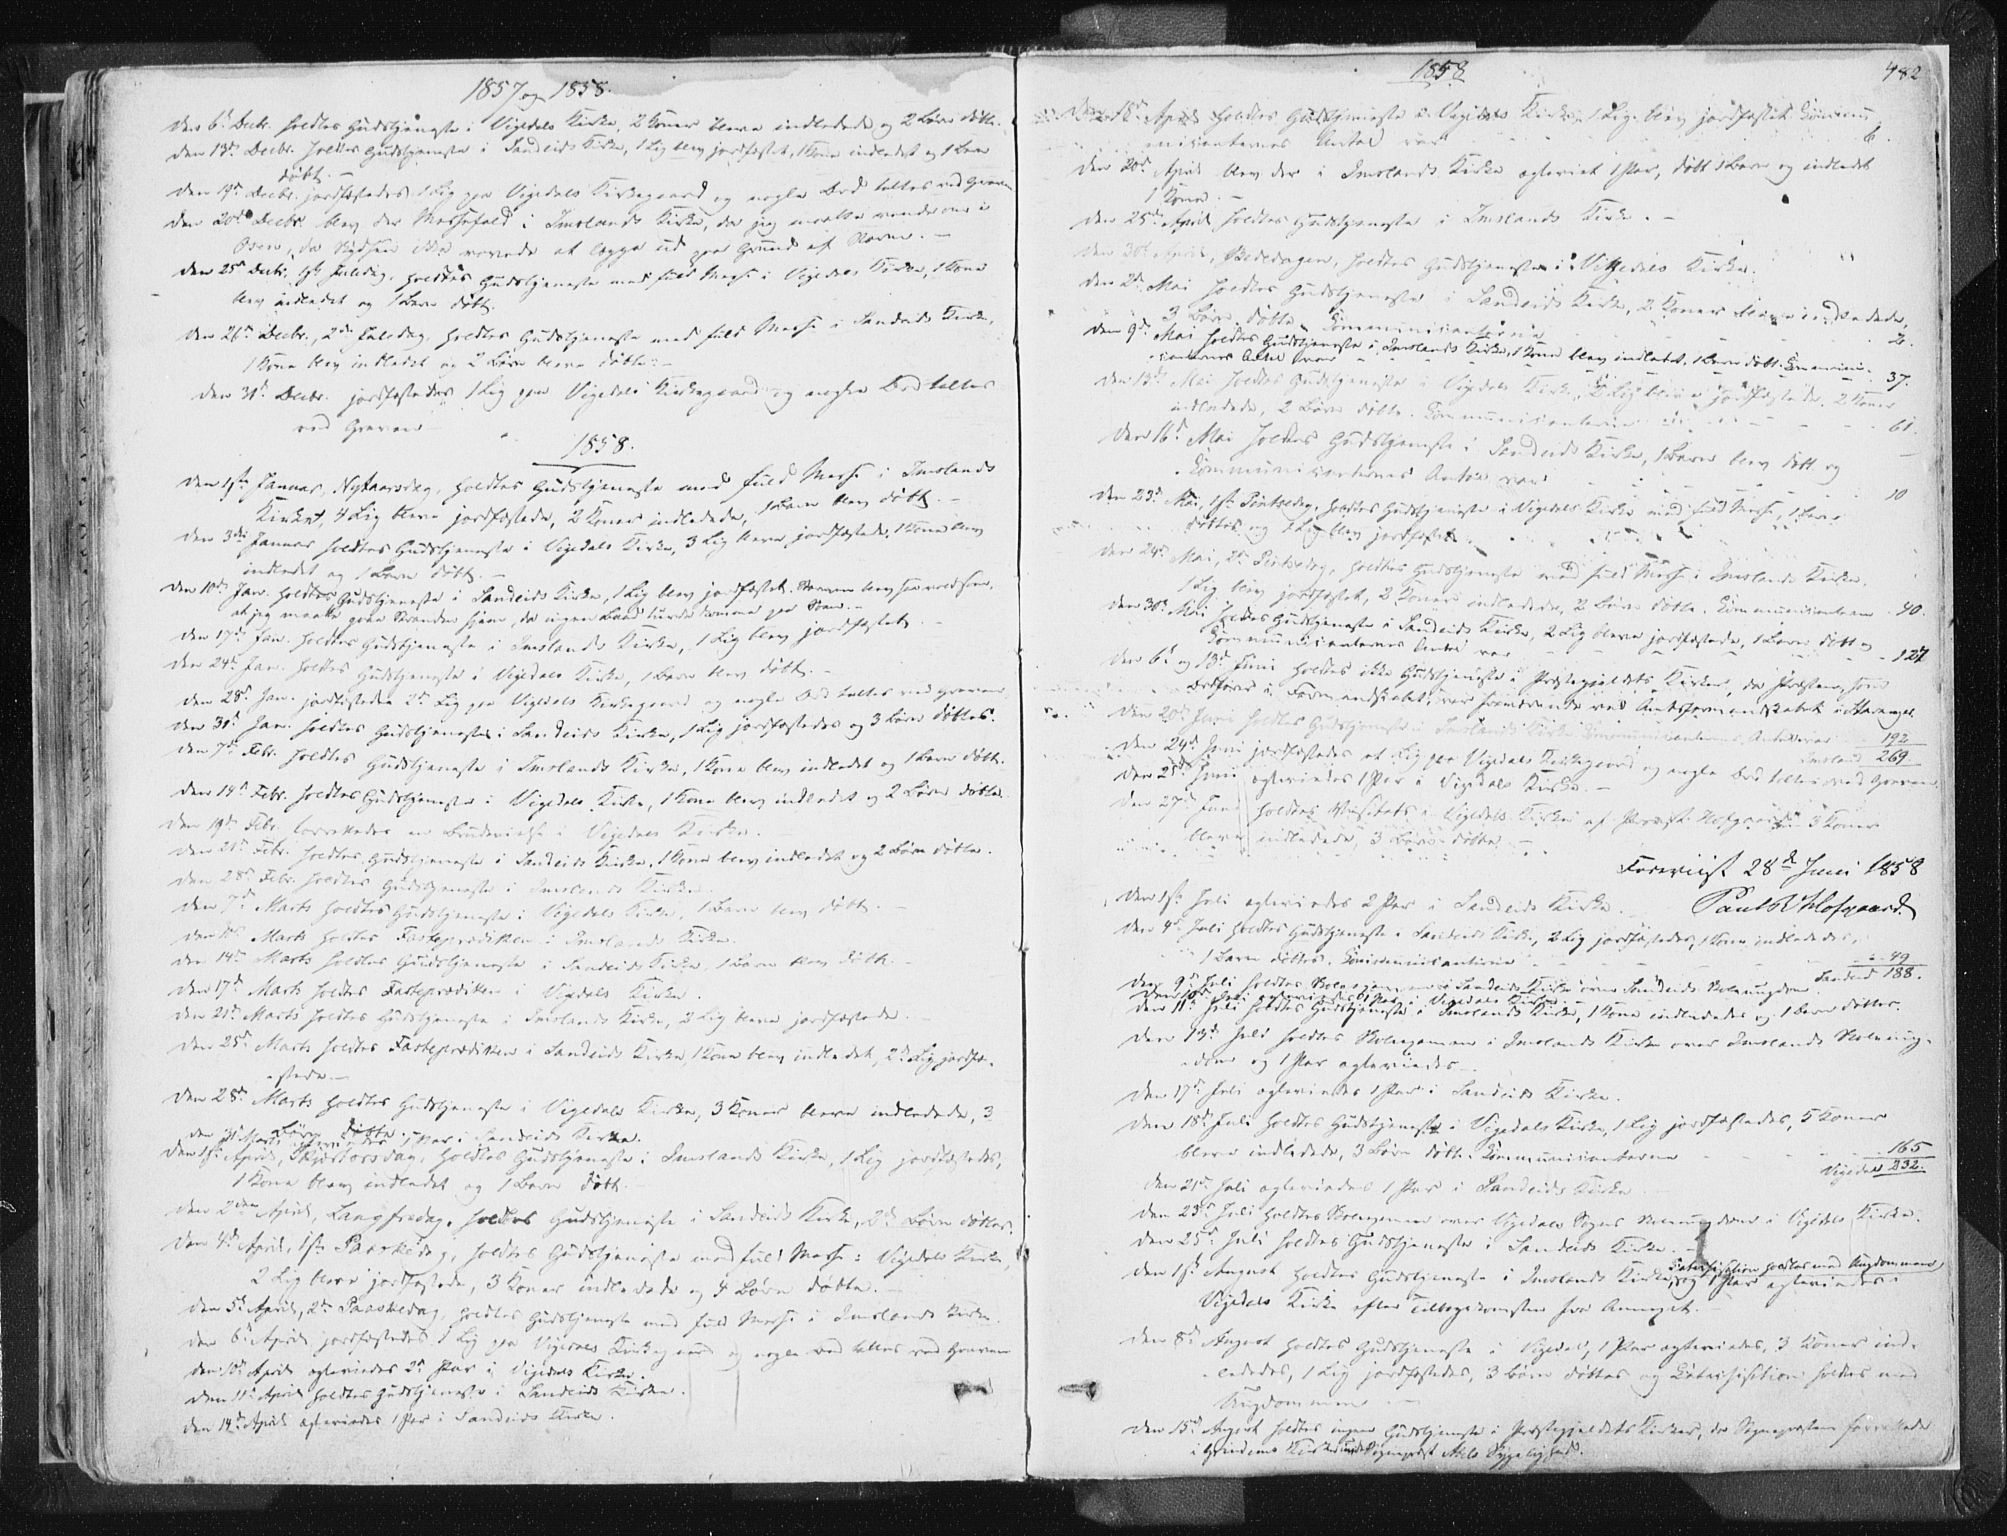 1857 og 1858.
den 6te Decbr. holdtes Gudstjeneste i Vigedals Kirke, 2 Koner bleve indledede og 2 Børn døbte.
den 13de Decbr. holdtes Gudstjeneste i Sandeids Kirke, 1 Lig blev jordfæstet, 1 Kone indledet og 1 Barn
døbt. —
den 19de Decbr. jordfæstedes 1 Lig paa Vigedals Kirkegaard og nogle Ord taltes ved Graven
den 20de Decbr. blev der Messefald i Imslands Kirke, da jeg maatte vende om i
Osen, da Skydsen ikke vovede at lægge ud paa Grund af Storm. —
den 25de Decbr. 1ste Juledag, holdtes Gudstjeneste med fuld Messe i Vigedals Kirke, 1 Kone
blev indledet og 1 Barn døbt.
den 26de Decbr., 2den Juledag, holdtes Gudstjeneste med fuld Messe i Sandeids Kirke,
1 Kone blev indledet og 2 Børn bleve døbte. —
den 31te Decbr. jordfæstedes 1 Lig paa Vigedals Kirkegaard og nogle Ord taltes
ved Graven
1858.
den 1ste Januar, Nytaarsdag, holdtes Gudstjeneste med fuld Messe i Imslands
Kirke, 4 Lig bleve jordfæstede, 2 Koner indledede, 1 Barn blev døbt. —
den 3die Januar holdtes Gudstjeneste i Vigedals Kirke, 3 Lig bleve jordfæstede, 1 Kone blev
indledet og 1 Barn døbt. —
den 10de Jan. holdtes Gudstjeneste i Sandeids Kirke, 1 Lig blev jordfæstet. Stormen blev saa voldsom,
at jeg maatte gaae Stranden hjem, da ingen Baad turde komme paa Søen. —
den 17de Jan. holdtes Gudstjeneste i Imslands Kirke, 1 Lig blev jordfæstet. —
den 24de Jan. holdtes Gudstjeneste i Vigedals Kirke, 1 Barn blev døbt. —
den 28de Jan. jordfæstedes 2de Lig paa Vigedals Kirkegaard og nogle Ord taltes ved Graven
den 31te Jan. holdtes Gudstjeneste i Sandeids Kirke, 1 Lig jordfæstedes og 3 Børn døbtes.
den 7de Febr. holdtes Gudstjeneste i Imslands Kirke, 1 Kone blev indledet og 1 Barn døbt.
den 14de Febr. holdtes Gudstjeneste i Vigedals Kirke, 1 Kone blev indledet og 2 Børn døbte.
den 19de Febr. forrettedes en Brudevielse i Vigedals Kirke.
den 21de Febr. holdtes Gudstjeneste i Sandeids Kirke, 1 Kone blev indledet og 2 Børn døbte.
den 28de Febr. holdtes Gudstjeneste i Imslands Kirke.
den 7de Marts holdtes Gudstjeneste i Vigedals Kirke, 1 Barn blev døbt. —
Marts holdtes Fasteprædiken i Imslands Kirke.
den 14de Marts holdtes Gudstjeneste i Sandeids Kirke, 1 Barn blev døbt. —
den 17de Marts holdtes Fasteprædiken i Vigedals Kirke.
den 21de Marts holdtes Gudstjeneste i Imslands Kirke, 2 Lig bleve jordfæstede. —
den 25de Marts holdtes Fasteprædiken i Sandeids Kirke, 1 Kone blev indledet, 2de Lig jordfæ-
stede. —
den 28de Marts holdtes Gudstjeneste i Vigedals Kirke, 3 Koner bleve indledede, 3
Børn døbte.
den 31te Marts 1 Par i Sandeids Kirke.
den 1ste April, Skjærtorsdag, holdtes Gudstjeneste i Imslands Kirke, 1 Lig jordfæstedes,
1 Kone blev indledet og 1 Barn døbt. —
den 2den April, Langfredag, holdtes Gudstjeneste i Sandeids Kirke, 2de Børn døbtes.
den 4de April, 1ste Paaskedag, holdtes Gudstjeneste med fuld Messe i Vigedals Kirke,
2 Lig bleve jordfæstede, 3 Koner indledede og 4 Børn døbte. —
den 5te April, 2den Paaskedag, holdtes Gudstjeneste med fuld Messe i Imslands Kirke.
den 6te April jordfæstedes 1 Lig paa Vigedals Kirkegaard og nogle Ord taltes ved Graven
den 10de April ægteviedes 2de Par i Vigedals Kirke.
den 11te April holdtes Gudstjeneste i Sandeids Kirke.
den 14de April ægteviedes 1 Par i Sandeids Kirke.
1858
482
den 18de April holdtes Gudstjeneste i Vigedals Kirke, 1 Lig blev jordfæstet. Commu-
nicanternes Antal var 6.
den 20de April blev der i Imslands Kirke ægteviet 1 Par, døbt 1 Barn og indledet
1 Kone. —
den 25de April holdtes Gudstjeneste i Imslands Kirke. —
den 30te April, Bededagen, holdtes Gudstjeneste i Vigedals Kirke.
den 2den Mai holdtes Gudstjeneste i Sandeids Kirke, 2 Koner bleve indledede,
3 Børn døbte. Communicanterne 2.
den 9de Mai holdtes Gudstjeneste i Imslands Kirke, 1 Kone blev indledet, 1 Barn døbt. Commu-
nicanternes Antal var 37.
den 13de Mai holdtes Gudstjeneste i Vigedals Kirke, 2 Lig bleve jordfæstede, 2 Koner
indledede, 2 Børn døbte. Communicanterne 61.
den 16de Mai holdtes Gudstjeneste i Sandeids Kirke, 1 Barn blev døbt og
Communicanternes Antal var —
den 23de Mai, 1ste Pintsedag, holdtes Gudstjeneste i Vigedals Kirke med fuld Messe, 1 Barn 10
døbtes og 1 Lig blev jordfæstet.
den 24de Mai, 2den Pintsedag, holdtes Gudstjeneste med fuld Messe i Imslands Kirke,
1 Lig blev jordfæstet, 2 Koner indledede, 2 Børn døbte. Communicanterne 40.
den 30te Mai holdtes Gudstjeneste i Sandeids Kirke, 2 Lig bleve jordfæstede, 1 Barn døbt og
Communicanternes Antal var 127
den 6te og 13de Juni holdtes ikke Gudstjeneste i Præstegjeldets Kirker, da Præsten, som
Ordfører i Formandskabet, var fraværende ved Amtsformandskabet i Stavanger.
den 20de Juni holdtes Gudstjeneste i Imslands Kirke. Communicanternes Antal var 192
Imsland 269
den 24de Juni jordfæstedes et Lig paa Vigedals Kirkegaard og nogle Ord taltes ved Graven.
den 25de Juni ægteviedes 1 Par i Vigedals Kirke. —
den 27de Juni holdtes Visitats i Vigedals Kirke af Provst Hofgaard. 3 Koner
bleve indledede, 3 Børn døbte —
Foreviist 28de Juni 1858
Paul Hofgaard.
den 1ste Juli ægteviedes 2 Par i Sandeids Kirke.
den 4de Juli holdtes Gudstjeneste i Sandeids Kirke, 2 Lig jordfæstedes, 1 Kone indlededes,
1 Barn døbtes. Communicanterne 49
Sandeid 188.
den 9de Juli holdtes Skoleexamen i Sandeids Kirke over Sandeids Skoleungdom.
den 10de Juli ægteviedes 1 Par i Vigedals Kirke.
den 11te Juli holdtes Gudstjeneste i Imslands Kirke, 1 Kone indlededes og 1 Barn døbtes.
den 13de Juli holdtes Skoleexamen i Imslands Kirke over Imslands Skoleung-
dom og 1 Par ægteviedes. —
den 17de Juli ægteviedes 1 Par i Sandeids Kirke.
den 18de Juli holdtes Gudstjeneste i Vigedals Kirke, 1 Lig jordfæstedes, 5 Koner
bleve indledede, 3 Børn døbte. Communicanterne 165
Vigedal 232.
den 21de Juli ægteviedes 1 Par i Sandeids Kirke.
den 23de Juli holdtes Skoleexamen over Vigedals Sogns Skoleungdom i Vigedals Kirke.
den 25de Juli holdtes Gudstjeneste i Sandeids Kirke. —
den 1ste August holdtes Gudstjeneste i Imslands Kirke, Catechisation holdtes med Ungdommen, og 1 Par ægteviedes i
Vigedals Kirke efter Tilbagekomsten fra Annexet.
den 8de August holdtes Gudstjeneste i Vigedal, 1 Par ægteviedes, 3 Koner ind-
lededes, 1 Lig jordfæstedes, 3 Børn døbtes og Catechisation holdtes med
Ungdommen. —
den 15de August holdtes ingen Gudstjeneste i Præstegjeldets Kirker, da Sognepræsten forrettede
i Kirke under Sognepræst Sygelighed.